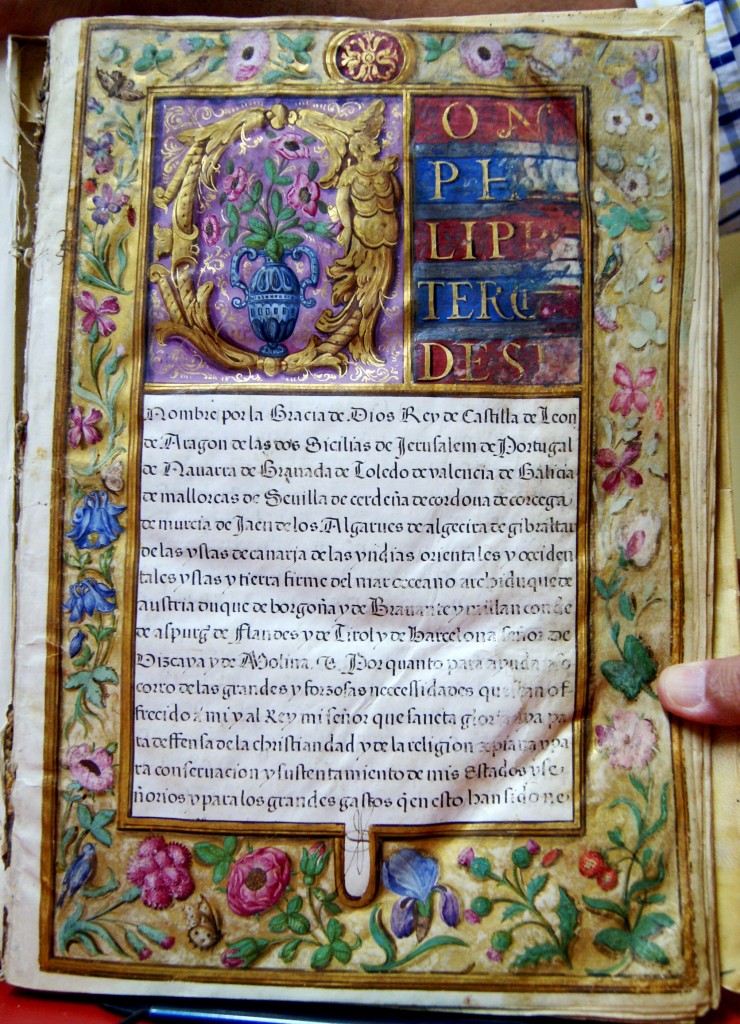 DON
PHE
LIPPE
TERCE
DESTE
Nombre por la Gracia de Dios Rey de Castilla de Leon
de Aragon de las dos Sicilias de Jerusalem de Portugal
de Navarra de Granada de Toledo de valencia de Galicia
de mallorcas de Sevilla de cerdeña de cordoua de corcega
de murcia de Jaen de los Algarues de algecira de gibraltar
de las yslas de canaria de las yndias orientales y occiden
tales yslas y tierra firme del mar oceano archiduque de
austria duque de borgoña y de Brauante y millan conde
de aspurg de Flandes y de Tirol y de Barcelona señor De
Vizcaya y de Molina. &. Por quanto para ayuda a so
corro de las grandes y forzosas necessidades que an of
frecido a mi y al Rey mi señor que sancta gloria aya pa
ra deffensa de la christiandad y de la religion y pa
ra conseruacion y sustentamiento de mis Estados y se
ñorios y para los grandes gastos q̃ en esto han sido ne